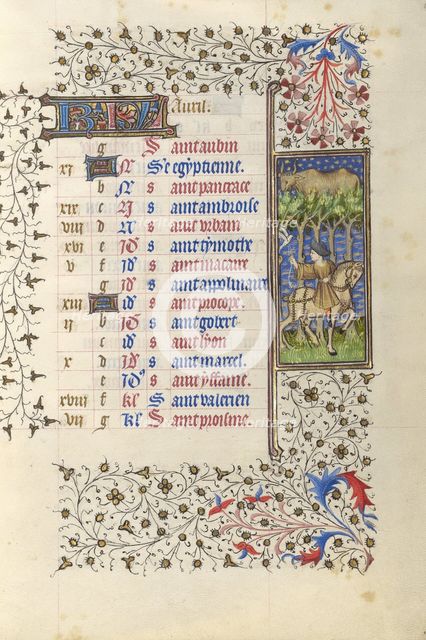 KL Auril.
g Saint aubin
xi A N Ste egyptienne.
b N saint pancrace
xix c N saint ambroise
viii d N saint urbain
xvi e id saint tymothe
v f id saint macaire
g id saint appolinaire
xiii A id saint procope.
ii id saint gobert
c id saint lyon
x d id saint marcel.
e id saint ysaine.
xviii f kl Saint valerien
vii g kl Saint
heritage
Heritage
Images